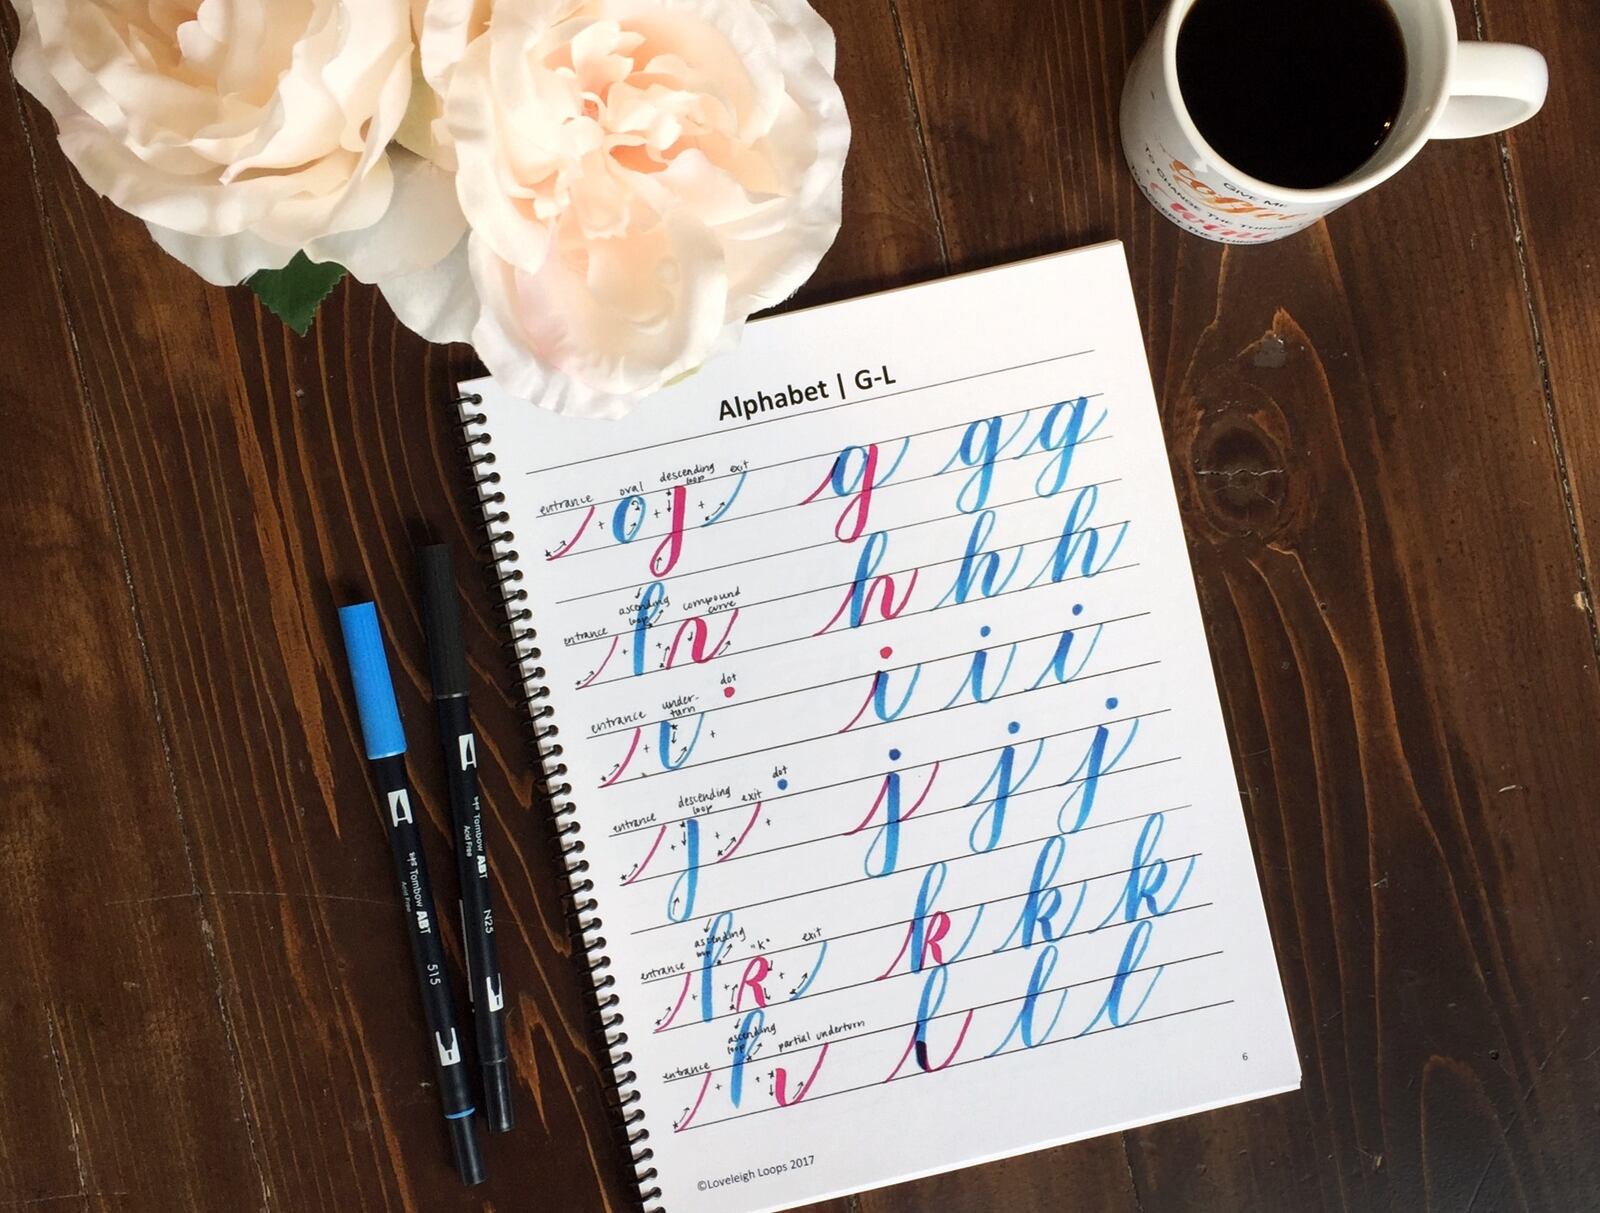 GIVE ME
coffee
TO CHANGE THE THINGS
wine
Alphabet | G-L
entrance + oval + descending loop + exit g g g
entrance + ascending loop + compound curve h h h
entrance + under-turn + dot i i i
entrance + descending loop + exit + dot j j j
entrance + ascending loop + "k" + exit k k k
entrance + ascending loop + partial underturn l l l
6
©Loveleigh Loops 2017
Tombow ABT
Acid Free
515
Tombow ABT
Acid Free
N25